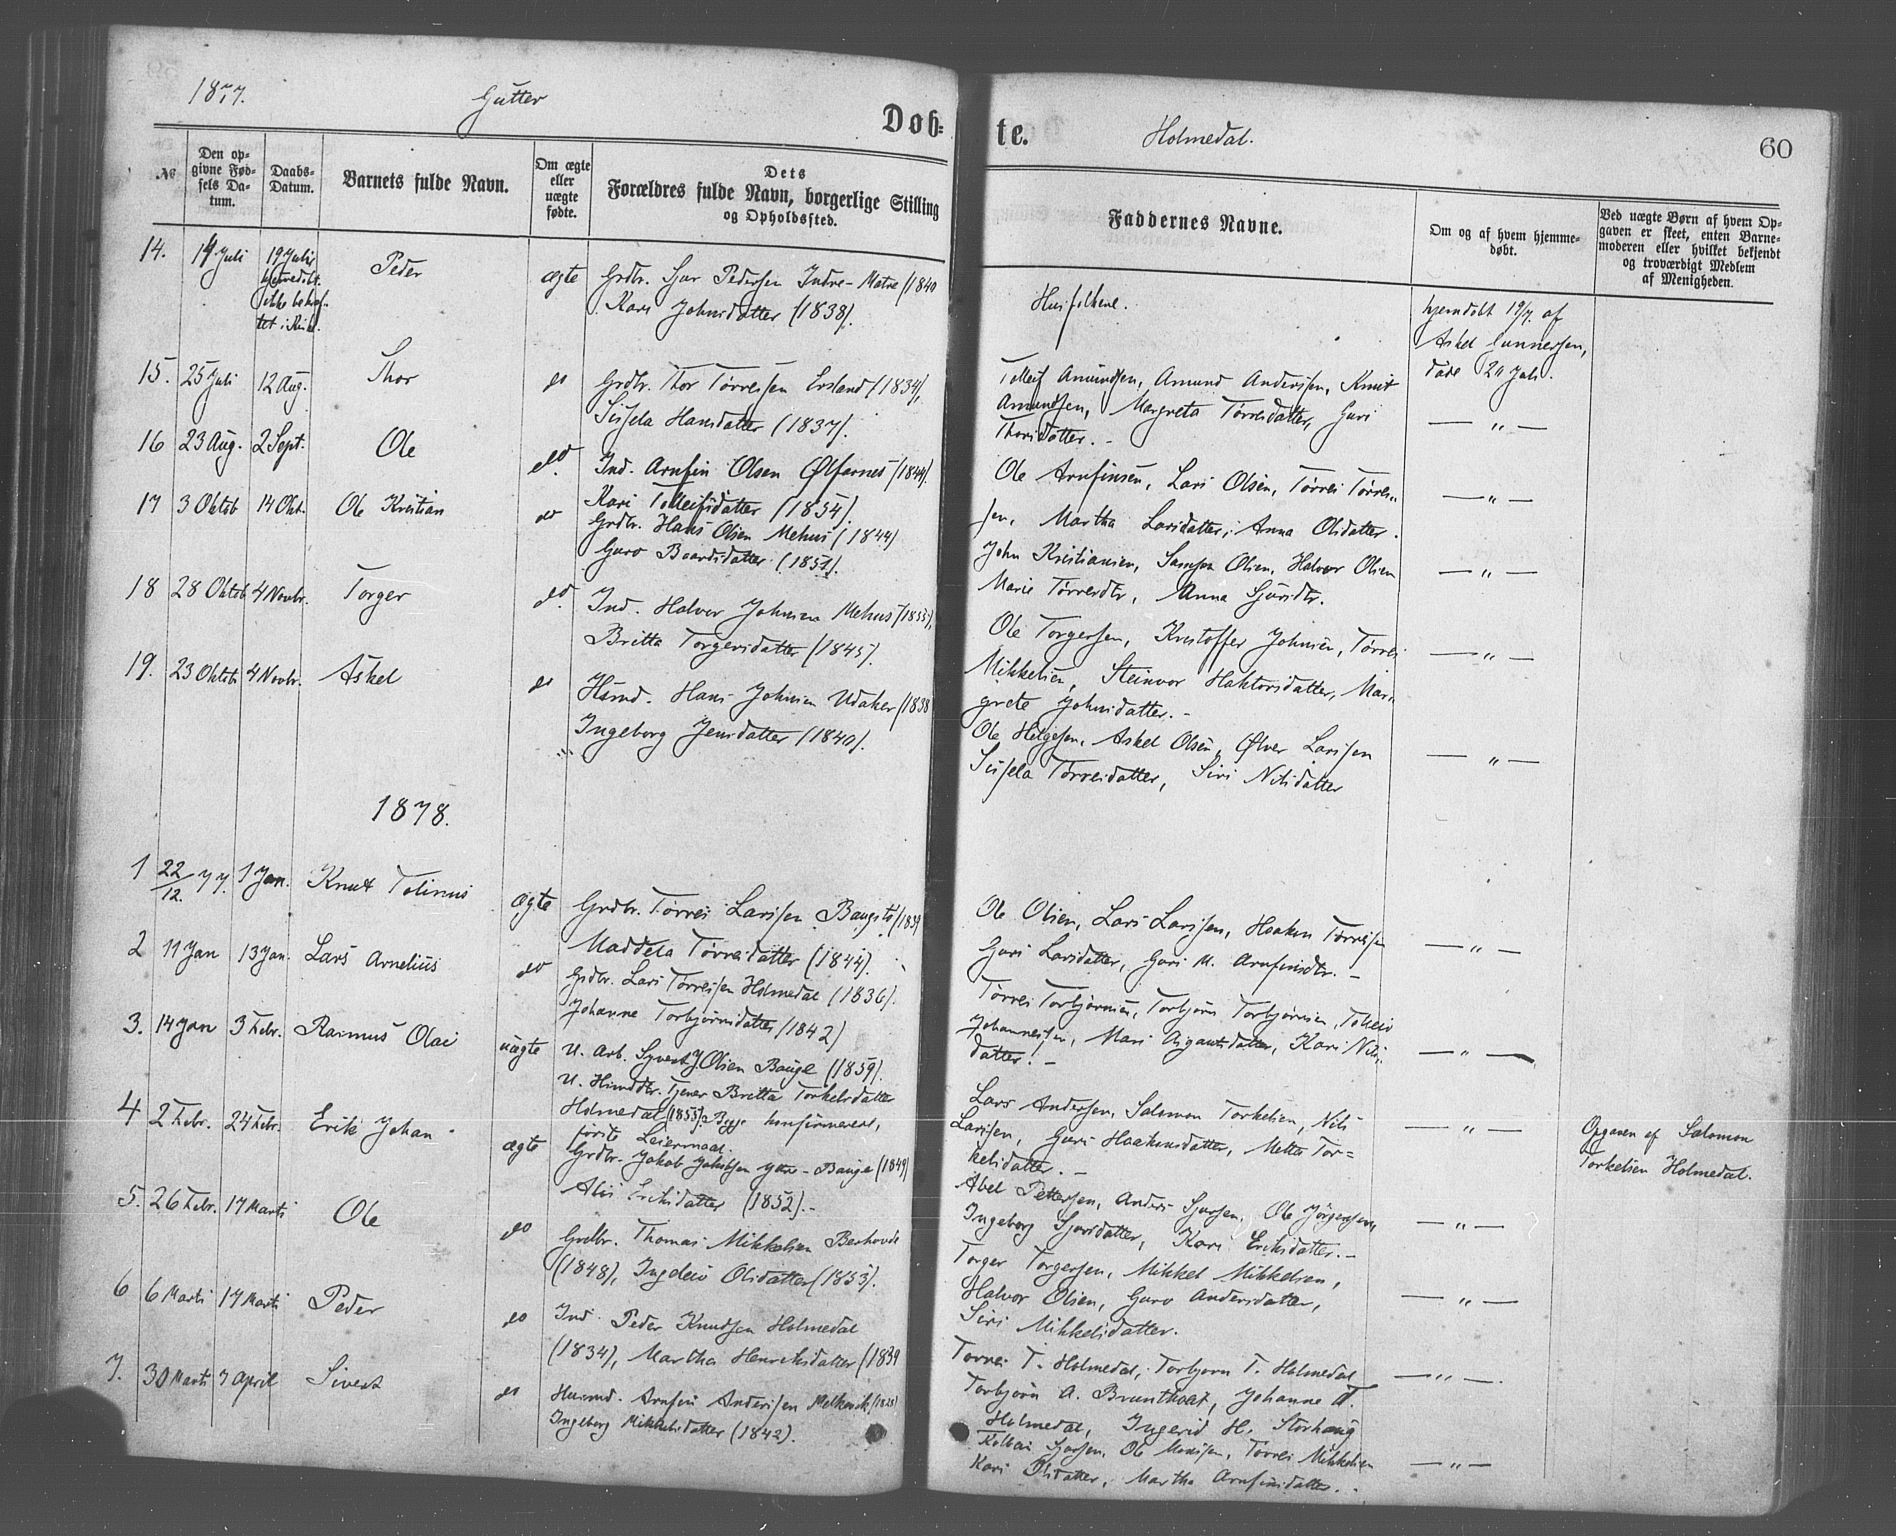 1877.
Gutter
Døb=
te.
Holmedal.
60
№
Den op-
givne Fød-
sels Da-
tum.
Daabs-
Datum.
Barnets fulde Navn.
Om ægte
eller
uægte
fødte.
Dets
Forældres fulde Navn, borgerlige Stilling
og Opholdssted.
Faddernes Navne.
Om og af hvem hjemme-
døbt.
Ved uægte Børn af hvem Op-
gaven er skeet, enten Barne-
moderen eller hvilket bekjendt
og troværdigt Medlem
af Menigheden.
14. 14 Juli 19 Juli Peder ægte Grdbr. Sjur Pedersen Indre-Matre (1840
Kari Johnsdatter (1838).
Husfolkene.
hjemdøbt 19/7 af
Askel Gunnersen,
døde 20 Juli.
15. 25 Juli 12 Aug. Thor do Grdbr. Thor Tørresen Ersland (1834),
Sissela Hansdatter (1837).
Tolleif Amundsen, Amund Andersen, Knut
Amundsen, Margreta Tørresdatter, Guri
Thorsdatter. -
— " —
16 23 Aug. 2 Sept. Ole do Ind. Arnfin Olsen Ølfarnes (1844).
Kari Tolleifsdatter (1854).
Ole Arnfinsen, Lars Olsen, Tørres Tørre-
sen, Martha Larsdatter, Anna Olsdatter.
— " —
17 3 Oktob 14 Okt. Ole Kristian do Grdbr. Hans Olsen Mehus (1844)
Guro Baardsdatter (1851).
John Kristiansen, Samson Olsen, Halvor Olsen
Marie Tørresdtr, Anna Sjursdtr.
— " —
18 28 Oktob 4 Novbr. Torger do. Ind. Halvor Johnsen Mehus (1855),
Britta Torgersdatter (1845).
Ole Torgersen, Kristoffer Johnsen, Tørres
Mikkelsen, Steinvor Haktorsdatter, Mar-
grete Johnsdatter. -
— " —
19. 23 Oktob 4 Novbr. Askel do Husmd. Hans Johnsen Udaker (1838
Ingeborg Jensdatter (1840).
Ole Helgesen, Askel Olsen, Ølver Larssen
Sissela Tørresdatter, Siri Nilsdatter
— " —
1878.
1 22/12 77. 1 Jan. Knut Tolinus ægte Grdbr. Tørres Larssen Baugstø (1837
Maddela Tørresdatter (1844).
Ole Olsen, Lars Larssen, Haaken Tørresen
Guri Larsdatter, Guri M. Arnfinsdtr. -
— " —
2 11 Jan 13 Jan. Lars Arnelius do Grdbr. Lars Tørresen Holmedal (1836).
Johanne Torbjørnsdatter (1842)
Tørres Torbjørnsen, Torbjørn Torbjørnsen, Tolleiv
Johannessen, Mari Aigautsdatter, Kari Nils-
datter. -
— " —
3. 14 Jan 3 Febr. Rasmus Olai uægte U. Arb. Syvert J. Olsen Bauge (1859).
U. Husmdtr. Tjener Britta Torkelsdatter
Holmedal (1853). Begge konfirmerede,
første Leiermaal.
Lars Andersen, Salomon Torkelsen, Nils
Larssen, Guri Haakensdatter, Mette Tor=
kelsdatter. -
— " —
Opgaven af Salomon
Torkelsen Holmedal.
4 2 Febr. 24 Febr. Erik Johan ægte Grdbr. Jakob Jakobsen Ytre-Bauge (1849)
Alis Eriksdatter (1852). -
Abel Pettersen, Anders Sjursen, Ole Jørgensen,
Ingeborg Sjursdatter, Kari Eriksdatter. -
— " —
5. 26 Febr. 17 Marts Ole do Grdbr. Thomas Mikkelsen Berhovde
(1848), Ingeleiv Olsdatter (1853).
Torger Torgersen, Mikkel Mikkelsen,
Halvor Olsen, Guro Andersdatter,
Siri Mikkelsdatter.
— " —
6 6 Marts 17 Marts Peder do Ind. Peder Knudsen Holmedal
(1834), Martha Henriksdatter (1839
Tørres T. Holmedal, Torbjørn T. Holmedal
Torbjørn A. Brunthvat, Johanne T.
Holmedal, Ingerid H. Storhaug
— " —
7. 30 Marts 7 April Sivert do Husmd. Arnfin Andersen Melkevik (1828)
Ingeborg Mikkelsdatter (1842).
Kolbein Sjursen, Ole Monsen, Tørres Mikkelsen
Kari Olsdatter, Martha Arnfinsdatter. -
— " —